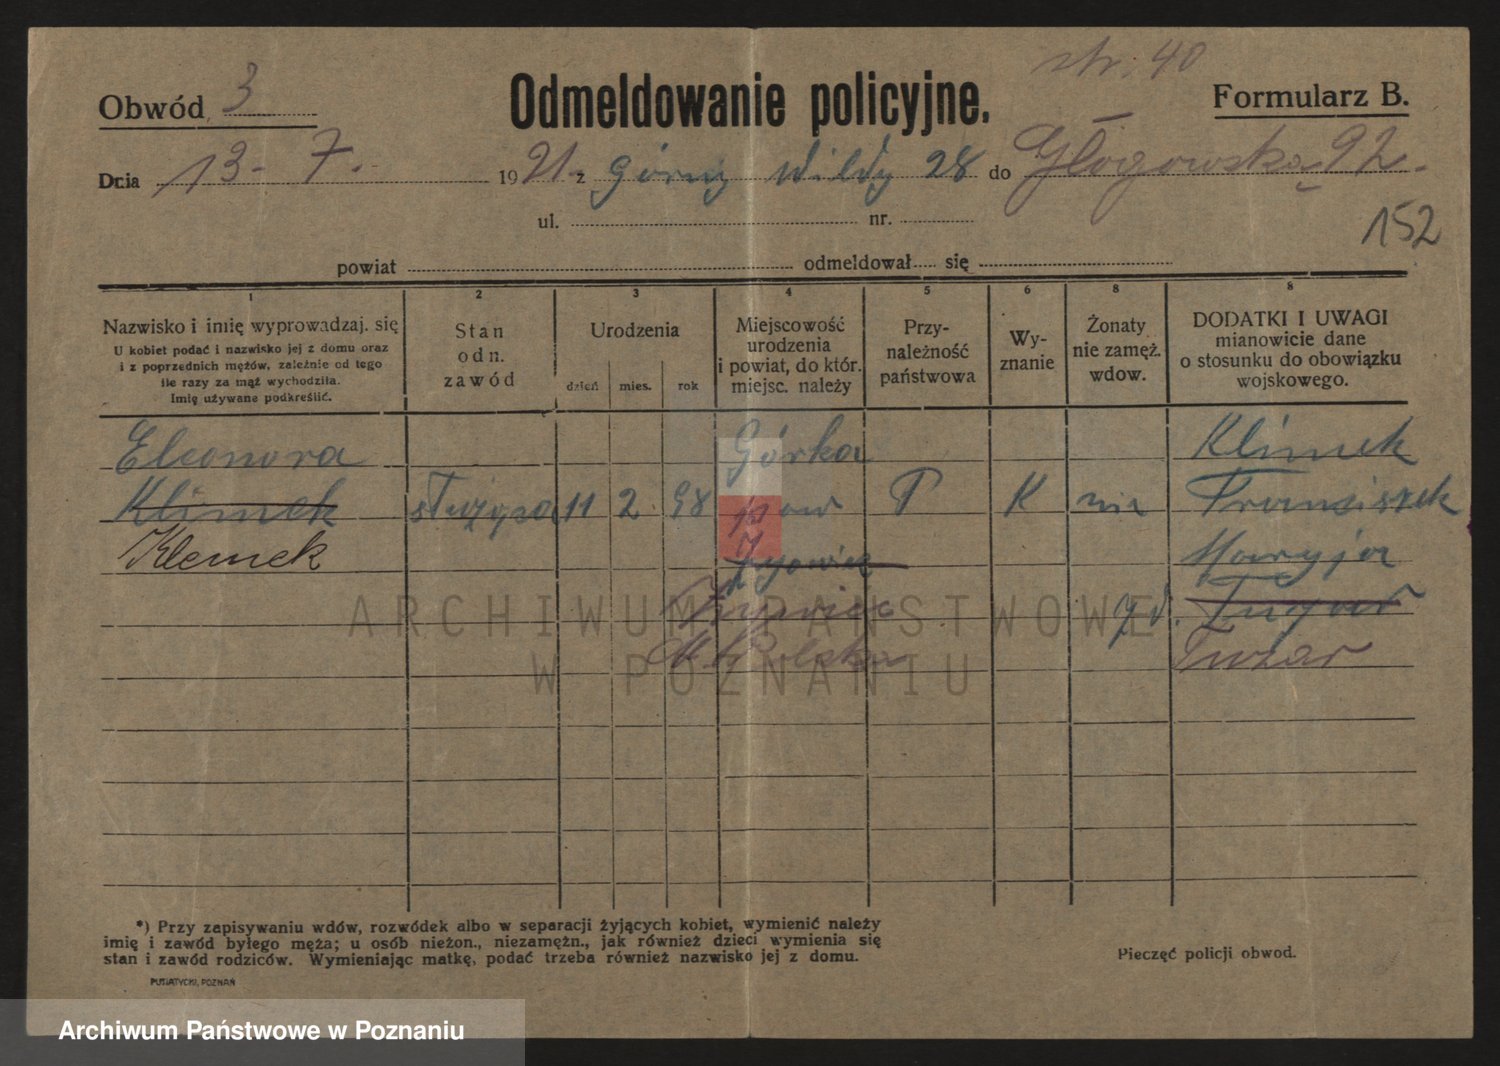 str. 40
Obwód 3
Odmeldowanie policyjne.
Formularz B.
Dnia 13. 7. 1921. z Górny Wildy 28 do Głogowską 92.
ul. nr.
152
powiat odmeldował się
1 2 3 4 5 6 8 8
Nazwisko i imię wyprowadzaj. się
U kobiet podać i nazwisko jej z domu oraz
i z poprzednich mężów, zależnie od tego
ile razy za mąż wychodziła.
Imię używane podkreślić.
Stan
odn.
zawód
Urodzenia
dzień mies. rok
Miejscowość
urodzenia
i powiat, do któr.
miejsc. należy
Przy-
należność
państwowa
Wy-
znanie
Żonaty
nie zamęż.
wdow.
DODATKI I UWAGI
mianowicie dane
o stosunku do obowiązku
wojskowego.
Eleonora Górka Klimek
Klimek służąca 11 2. 98 pow P K nie Franciszek
Klemek Maryja
Żywiec yd.
M. Polska Tuzar
ARCHIWUM PAŃSTWOWE
W POZNANIU
*) Przy zapisywaniu wdów, rozwódek albo w separacji żyjących kobiet, wymienić należy
imię i zawód byłego męża; u osób nieżon., niezamężn., jak również dzieci wymienia się
stan i zawód rodziców. Wymieniając matkę, podać trzeba również nazwisko jej z domu.
Pieczęć policji obwod.
PUTIATYCKI, POZNAŃ
Archiwum Państwowe w Poznaniu